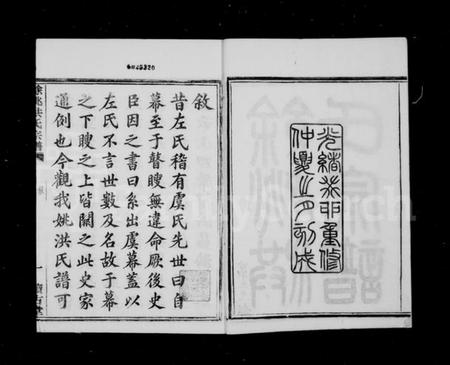 光緒辛卯重修
仲夏之月刻成
敘
昔左氏稽有虞氏先世曰自
幕至于瞽瞍無違命厥後史
臣因之書曰系出虞幕蓋以
左氏不言世數及名故于幕
之下瞍之上皆闕之此史家
通例也今觀我姚洪氏譜可
餘姚洪氏宗譜
一